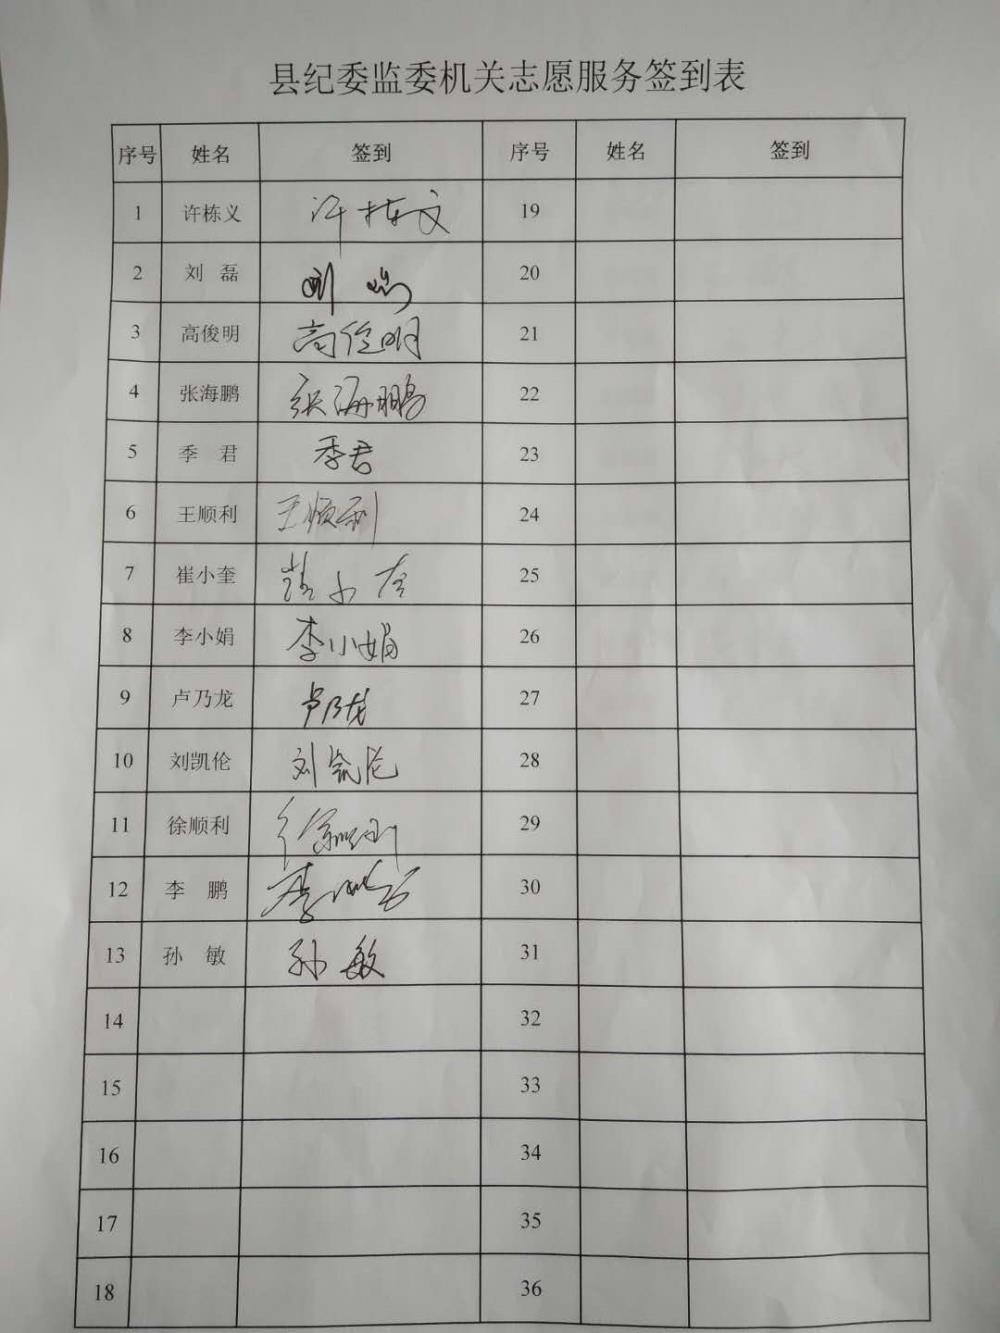 县纪委监委机关志愿服务签到表
序号 姓名 签到 序号 姓名 签到
1 许栋义 许栋文 19
2 刘 磊 刘 20
3 高俊明 高俊明 21
4 张海鹏 张海鹏 22
5 季 君 季君 23
6 王顺利 王顺利 24
7 崔小奎 崔小奎 25
8 李小娟 李小娟 26
9 卢乃龙 卢乃龙 27
10 刘凯伦 刘凯伦 28
11 徐顺利 徐顺利 29
12 李 鹏 李鹏 30
13 孙 敏 孙敏 31
14 32
15 33
16 34
17 35
18 36